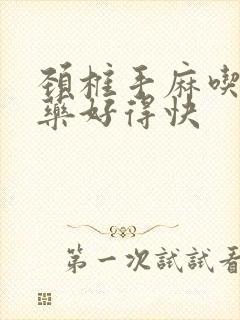 頚椎手麻喫
藥好得快
第一次試試看